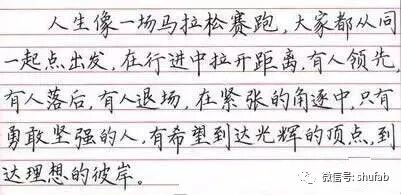 人生像一场马拉松赛跑,大家都从同
一起点出发,在行进中拉开距离,有人领先,
有人落后,有人退场,在紧张的角逐中,只有
勇敢坚强的人,有希望到达光辉的顶点,到
达理想的彼岸。
微信号: shufab